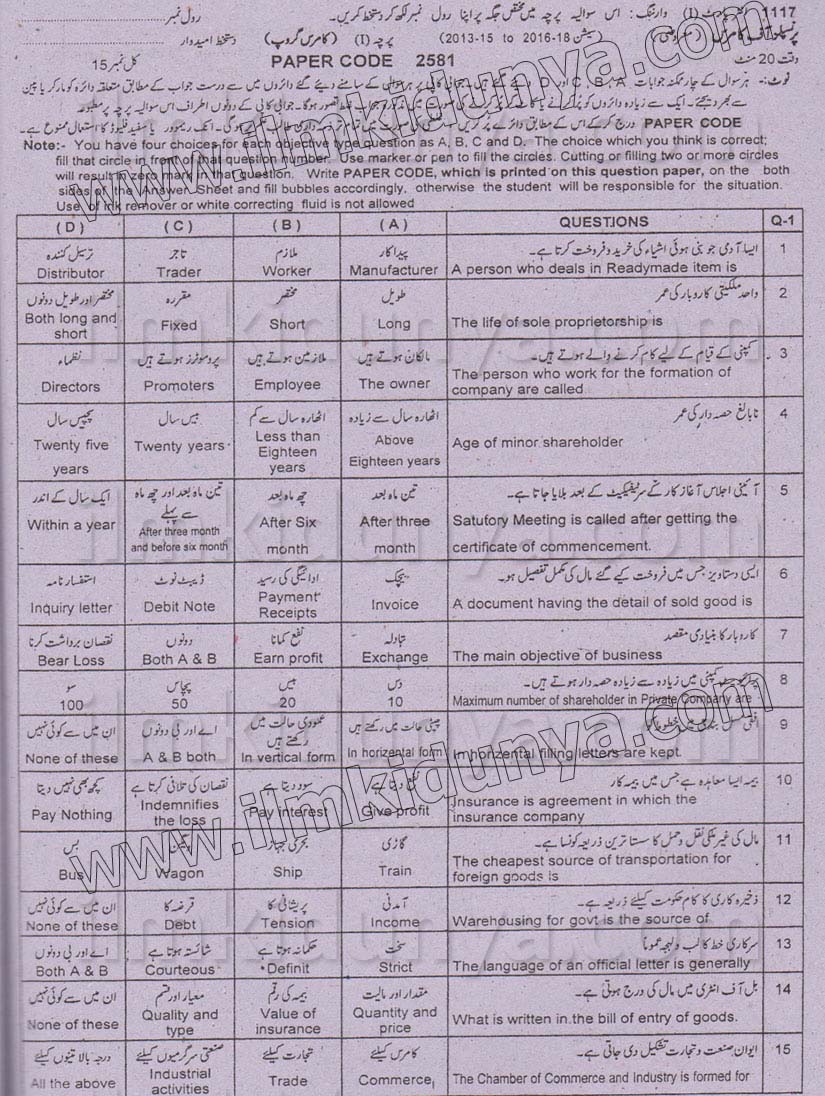 1117 وارننگ:۔ اس سوالیہ پرچہ میں مختص جگہ پر اپنا رول نمبر لکھ کر دستخط کریں۔ رول نمبر
پرنسپلز آف کامرس (معروضی) سیشن 2016-18 to 2013-15 پرچہ (I) (کامرس گروپ) دستخط امیدوار
وقت 20 منٹ PAPER CODE 2581 کل نمبر 15
نوٹ:۔ ہر سوال کے چار ممکنہ جوابات A، B، C اور D دیئے گئے ہیں۔ جوابی کاپی پر ہر سوال کے سامنے دیئے گئے دائروں میں سے درست جواب کے مطابق متعلقہ دائرہ کو مارکر یا پین
سے بھر دیجئے۔ ایک سے زیادہ دائروں کو پُر کرنے یا کاٹ کر پُر کرنے کی صورت میں مذکورہ جواب غلط تصور ہوگا۔ جوابی کاپی کے دونوں اطراف اس سوالیہ پرچہ پر مطبوعہ
PAPER CODE درج کرکے اس کے مطابق دائرے پُر کریں۔ انک ریموور یا سفید فلیوڈ کا استعمال ممنوع ہے۔
Note:- You have four choices for each objective type question as A, B, C and D. The choice which you think is correct;
fill that circle in front of that question number. Use marker or pen to fill the circles. Cutting or filling two or more circles
will result in zero mark in that question. Write PAPER CODE, which is printed on this question paper, on the both
sides of the Answer Sheet and fill bubbles accordingly, otherwise the student will be responsible for the situation.
Use of ink remover or white correcting fluid is not allowed
( D ) ( C ) ( B ) ( A ) QUESTIONS Q-1
ترسیل کنندہ تاجر ملازم پیداکار ایسا آدمی جو بنی ہوئی اشیاء کی خرید و فروخت کرتا ہے۔ 1
Distributor Trader Worker Manufacturer A person who deals in Readymade item is
مختصر اور طویل دونوں مقررہ مختصر طویل واحد ملکیتی کاروبار کی عمر 2
Both long and short Fixed Short Long The life of sole proprietorship is
نظماء پروموٹرز ہوتے ہیں ملازمین ہوتے ہیں مالکان ہوتے ہیں کمپنی کے قیام کے لیے کام کرنے والے ہوتے ہیں۔ 3
Directors Promoters Employee The owner The person who work for the formation of
company are called
پچیس سال بیس سال اٹھارہ سال سے کم اٹھارہ سال سے زیادہ نابالغ حصہ دار کی عمر 4
Twenty five years Twenty years Less than Eighteen years Above Eighteen years Age of minor shareholder
ایک سال کے اندر تین ماہ بعد اور چھ ماہ سے پہلے چھ ماہ بعد تین ماہ بعد آئینی اجلاس آغاز کار کے سرٹیفکیٹ کے بعد بلایا جاتا ہے۔ 5
Within a year After three month and before six month After Six month After three month Satutory Meeting is called after getting the
certificate of commencement.
استفسار نامہ ڈیبٹ نوٹ ادائیگی کی رسید بیچک ایسی دستاویز جس میں فروخت کیے گئے مال کی مکمل تفصیل ہو۔ 6
Inquiry letter Debit Note Payment Receipts Invoice A document having the detail of sold good is
نقصان برداشت کرنا دونوں نفع کمانا تبادلہ کاروبار کا بنیادی مقصد 7
Bear Loss Both A & B Earn profit Exchange The main objective of business
سو پچاس بیس دس پرائیویٹ کمپنی میں زیادہ سے زیادہ حصہ دار ہوتے ہیں۔ 8
100 50 20 10 Maximum number of shareholder in Private Company are
ان میں سے کوئی نہیں اے اور بی دونوں عمودی حالت میں رکھتے ہیں چپٹی حالت میں رکھتے ہیں افقی 9
None of these A & B both In vertical form In horizental form In horizental filling letters are kept.
کچھ بھی نہیں دیتا نقصان کی تلافی کرتا ہے سود دیتا ہے نفع دیتا ہے بیمہ ایسا معاہدہ ہے جس میں بیمہ کار 10
Pay Nothing Indemnifies the loss Pay interest Give profit Insurance is agreement in which the
insurance company
بس ویگن بحری جہاز گاڑی مال کی غیر ملکی نقل و حمل کا سستا ترین ذریعہ کونسا ہے۔ 11
Bus Wagon Ship Train The cheapest source of transportation for
foreign goods is
ان میں سے کوئی نہیں قرضہ کا پریشانی کا آمدنی ذخیرہ کاری کا کام حکومت کیلئے ذریعہ ہے۔ 12
None of these Debt Tension Income Warehousing for govt is the source of
اے اور بی دونوں شائستہ ہوتا ہے حکمانہ ہوتا ہے سخت سرکاری خط کا لب و لہجہ عموماً 13
Both A & B Courteous Definit Strict The language of an official letter is generally
ان میں سے کوئی نہیں معیار اور قسم بیمہ کی رقم مقدار اور مالیت بل آف انٹری میں مال کی درج ہوتی ہے۔ 14
None of these Quality and type Value of insurance Quantity and price What is written in the bill of entry of goods.
درجہ بالا تینوں کیلئے صنعتی سرگرمیوں کیلئے تجارت کیلئے کامرس کیلئے ایوان صنعت و تجارت تشکیل دی جاتی ہے۔ 15
All the above Industrial activities Trade Commerce, The Chamber of Commerce and Industry is formed for
www.ilmkidunya.com
www.ilmkidunya.com